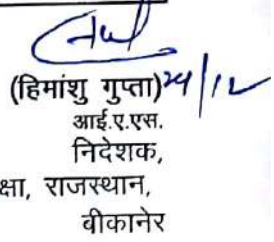 (हिमांशु गुप्ता) 24/12
आई.ए.एस.
निदेशक,
क्षा, राजस्थान,
बीकानेर